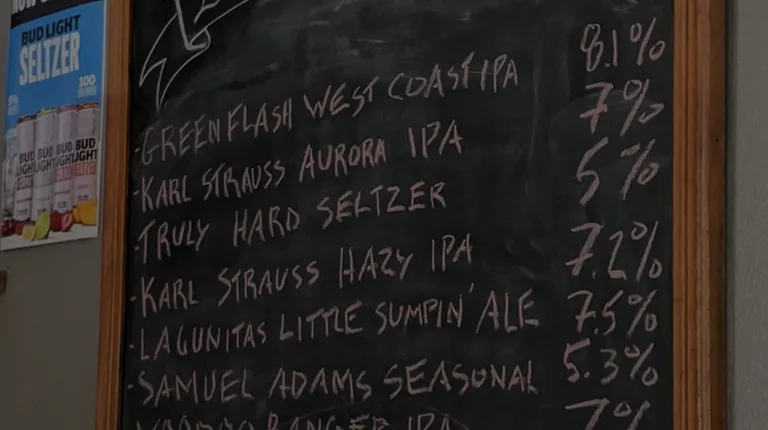 BUD LIGHT
SELTZER
100
GREEN FLASH WEST COAST IPA 8.1%
KARL STRAUSS AURORA IPA 7%
TRULY HARD SELTZER 5%
KARL STRAUSS HAZY IPA 7.2%
LAGUNITAS LITTLE SUMPIN' ALE 7.5%
SAMUEL ADAMS SEASONAL 5.3%
VOODOO RANGER IPA 7%